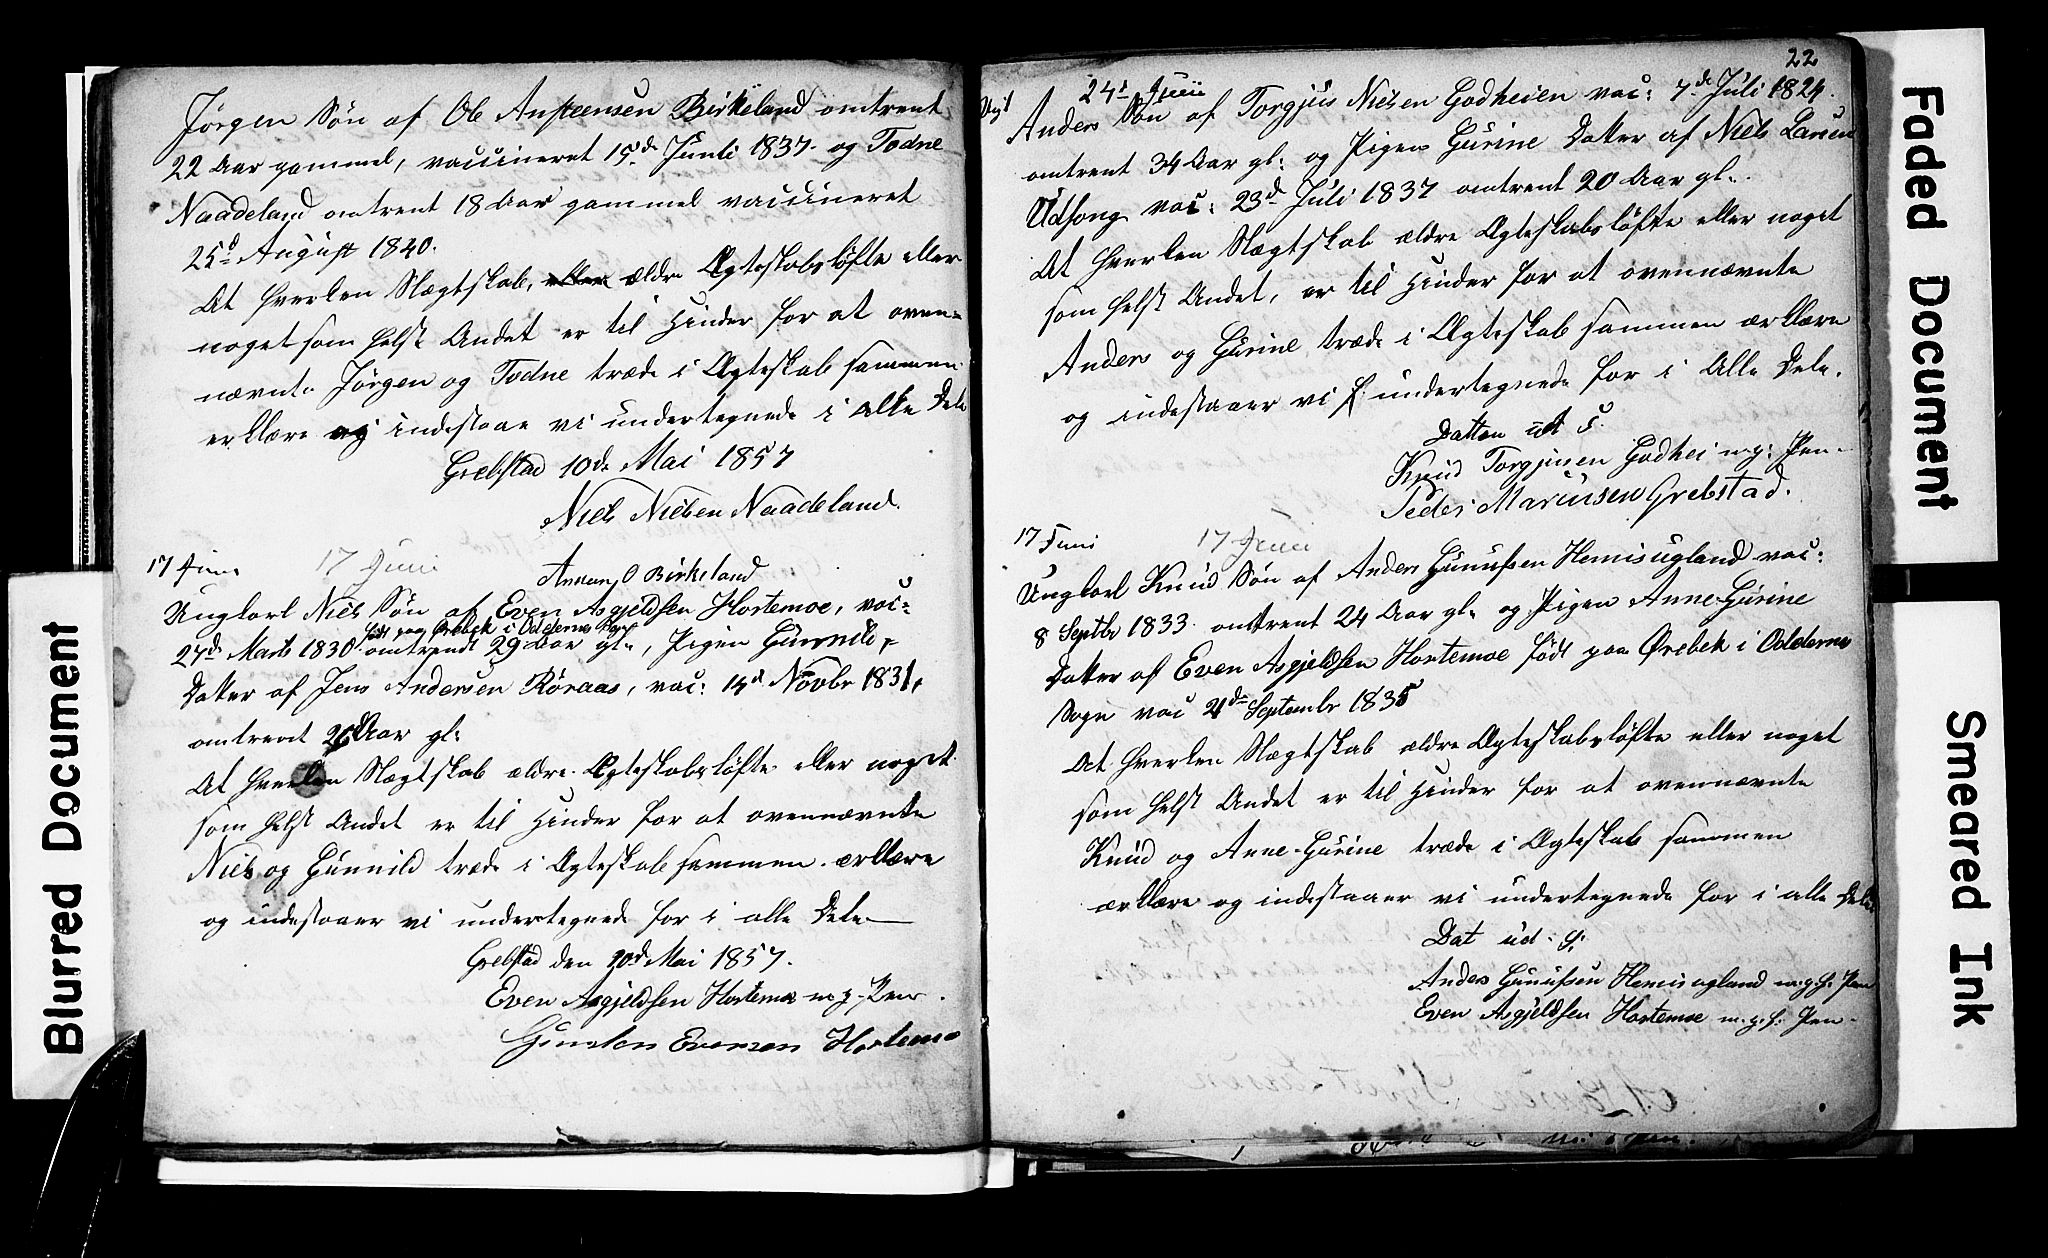 Jørgen Søn af Ole Ansteensen Birkeland omtrent
22 Aar gammel, vaccineret 15de Juuli 1837 og Todne
Naadeland omtrent 18 Aar gammel vaccineret
25d August 1840.
At hverken Slægtskab, eller ældre Ægteskabsløfte eller
noget som helst Andet er til Hinder for at oven-
nævnte Jørgen og Todne træde i Ægteskab sammen
erklære og indestaae vi undertegnede i alle Dele
Grebstad 10de Mai 1857
Niels Nielsen Naadeland.
17 Juni 17 Juni
O Birkeland
Ungkarl Niels Søn af Even Asgjeldsen Hortemoe, vac:
født paa Ørebek i Oddernes Sogn
27de Marts 1830 omtrendt 29 Aar gl., Pigen Gunnild,
Datter af Jens Andersen Røraas, vac: 15d Novbr 1831,
omtrent Aar gl:
At hverken Slægtskab ældre Ægteskabsløfte eller noget
som helst Andet er til Hinder for at ovennævnte
Niels og Gunnild træde i Ægteskab sammen erklære
og indestaaer vi undertegnede for i alle Dele
Grebstad den 10d Mai 1857.
Even Asgjeldsen Hortemoe m. p. Pen.
Evensen Hortemo
22
24d Juni
Anders Søn af Torgjus Nielsen Godheien vac: 7de Juli 1824.
omtrent 34 Aar gl: og Pigen Gurine Datter af Niels Larsen
Udsong vac: 23d Juli 1837 omtrent 20 Aar gl.
At hverken Slægtskab ældre Ægteskabsløfte eller noget
som helst Andet, er til Hinder for at ovennævnte
Anders og Gurine træde i Ægteskab sammen erklære
og indestaaer vi undertegnede for i Alle Dele.
Datten ut S.
Knud Torgjusen Godhei m. p: Pen
Peder Mariusen Grebstad.
17 Juni 17 Juni
Ungkarl Knud Søn af Anders Gunufsen Hemisugland vac:
8 Septbr 1833 omtrent 24 Aar gl: og Pigen Anne Gurine
Datter af Even Asgjeldsen Hortemoe født paa Ørebek i Oddernes
Sogn vac September 1835
At hverken Slægtskab ældre Ægteskabsløfte eller noget
som helst Andet er til Hinder for at ovennævnte
Knud og Anne Gurine træde i Ægteskab sammen
erklære og indestaaer vi undertegnede for i alle Dele
Dat ud. S.
Anders Gunufsen Hemisugland m. p. f. Pen
Even Asgjeldsen Hortemoe m. p. f. Pen
Blurred Document
Faded Document
Smeared Ink